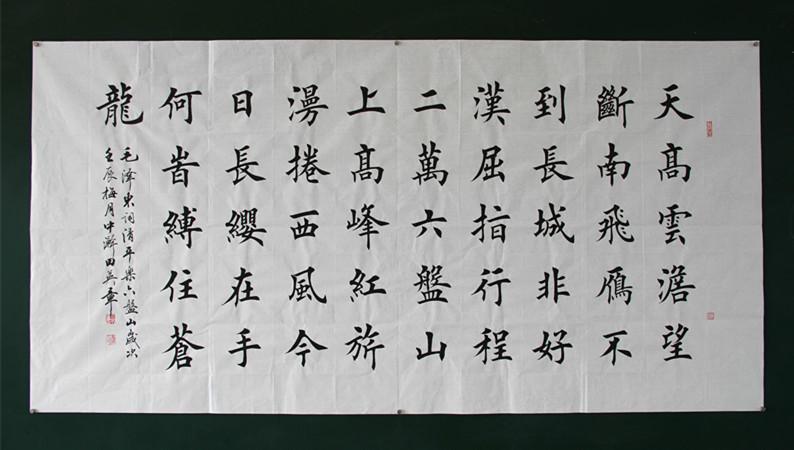 天髙雲澹望
斷南飛鴈不
到長城非好
漢屈指行程
二萬六盤山
上髙峰紅旂
漫捲西風今
日長纓在手
何旹縛住蒼
龍
毛澤東詞清平樂六盤山歲次
壬辰梅月中澣田英章